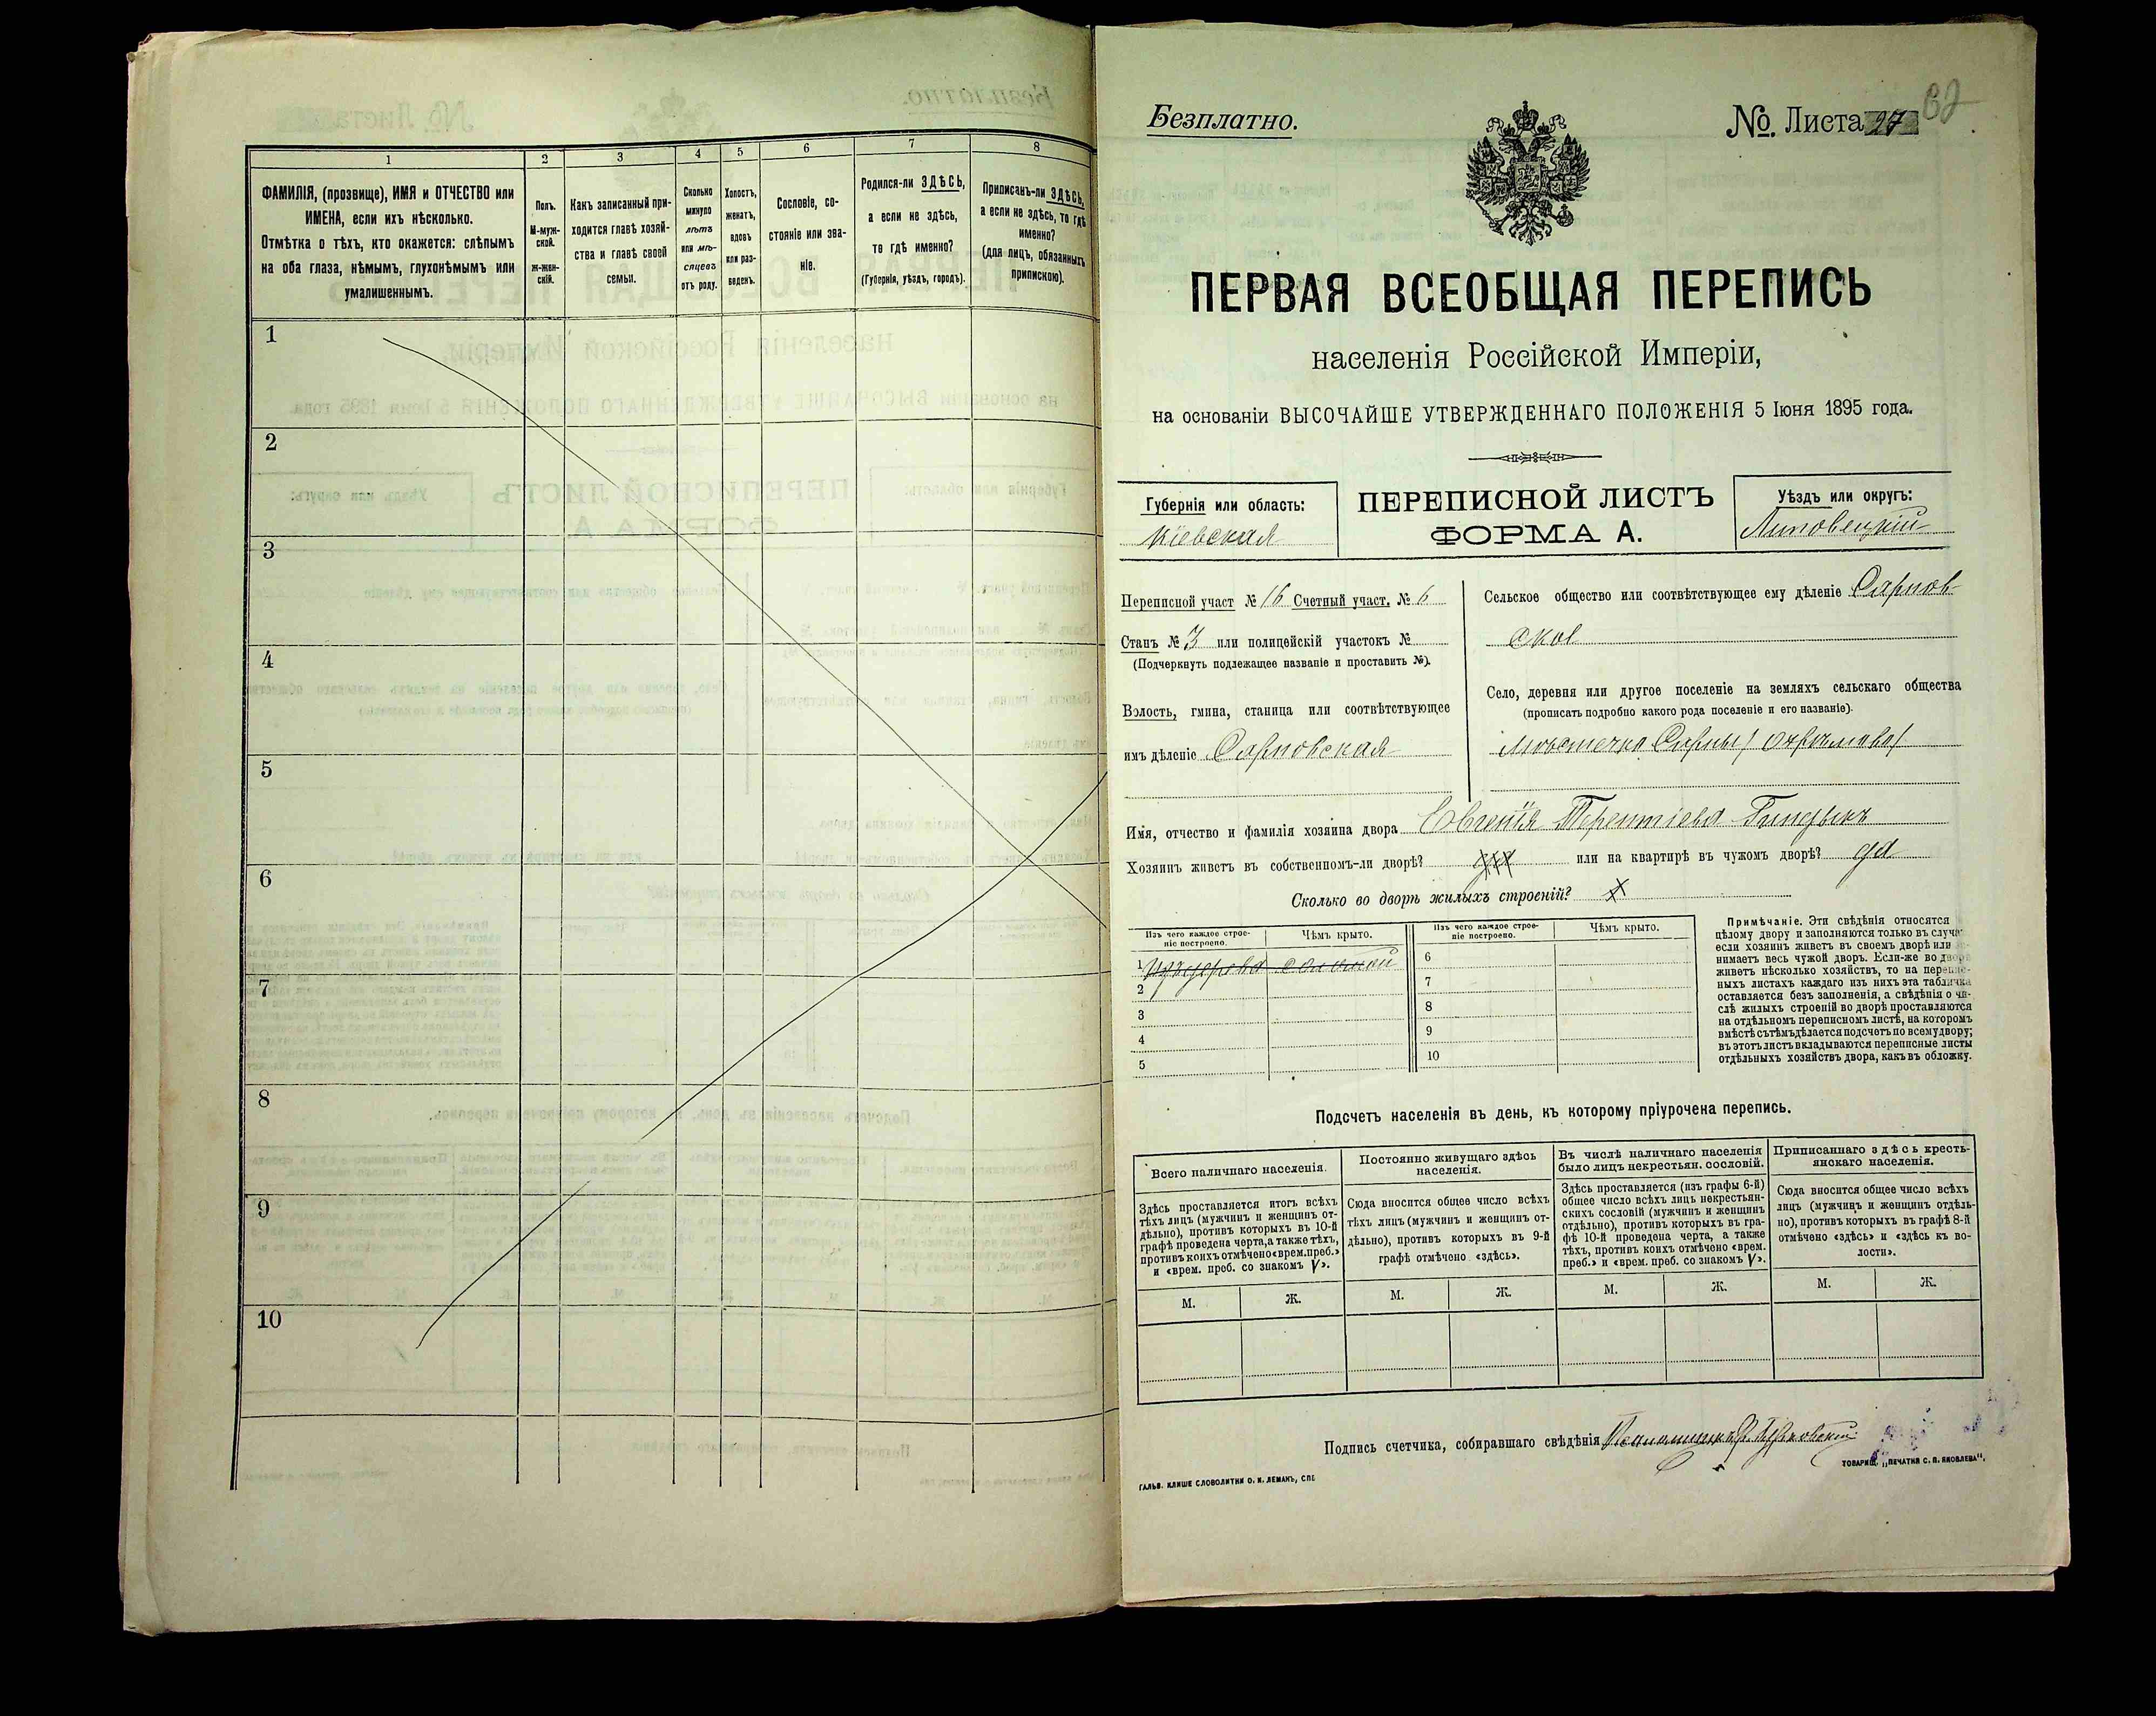 1
2
3
4
5
6
7
8
ФАМИЛІЯ, (прозвище), ИМЯ и ОТЧЕСТВО или
ИМЕНА, если ихъ нѣсколько.
Отмѣтка о тѣхъ, кто окажется: слѣпымъ
на оба глаза, нѣмымъ, глухонѣмымъ или
умалишеннымъ.
Полъ.
М-муж-
ской.
ж-жен-
скій.
Какъ записанный при-
ходится главѣ хозяй-
ства и главѣ своей
семьи.
Сколько
минуло
лѣтъ
или мѣ-
сяцевъ
отъ роду.
Холостъ,
женатъ,
вдовъ
или раз-
веденъ.
Сословіе, со-
стояніе или зва-
ніе.
Родился-ли ЗДѢСЬ,
а если не здѣсь,
то гдѣ именно?
(Губернія, уѣздъ, городъ).
Приписанъ-ли ЗДѢСЬ,
а если не здѣсь, то гдѣ
именно?
(для лицъ, обязанныхъ
припискою).
1
2
3
4
5
6
7
8
9
10
Безплатно.
№. Листа 27
62
ПЕРВАЯ ВСЕОБЩАЯ ПЕРЕПИСЬ
населенія Россійской Имперіи,
на основаніи ВЫСОЧАЙШЕ УТВЕРЖДЕННАГО ПОЛОЖЕНІЯ 5 Іюня 1895 года.
Губернія или область:
Кіевская
ПЕРЕПИСНОЙ ЛИСТЪ
ФОРМА А.
Уѣздъ или округъ:
Липовецкій
Переписной участ № 16 Счетный участ. № 6
Станъ № 3 или полицейскій участокъ №
(Подчеркнуть подлежащее названіе и проставить №).
Волость, гмина, станица или соотвѣтствующее
имъ дѣленіе Сарновская
Сельское общество или соотвѣтствующее ему дѣленіе Сарнов-
ское
Село, деревня или другое поселеніе на земляхъ сельскаго общества
(прописать подробно какого рода поселеніе и его названіе).
Мѣстечко Сарны
Имя, отчество и фамилія хозяина двора Евгенія Терентіева
Хозяинъ живетъ въ собственномъ-ли дворѣ? или на квартирѣ въ чужомъ дворѣ? да
Сколько во дворѣ жилыхъ строеній?
Изъ чего каждое строе-
ніе построено.
Чѣмъ крыто.
Изъ чего каждое строе-
ніе построено.
Чѣмъ крыто.
1 изъ дерева соломой
2
3
4
5
6
7
8
9
10
Примѣчаніе. Эти свѣдѣнія относятся
цѣлому двору и заполняются только въ случа
если хозяинъ живетъ въ своемъ дворѣ или
нимаетъ весь чужой дворъ. Если-же во дворѣ
живетъ нѣсколько хозяйствъ, то на перепис-
ныхъ листахъ каждаго изъ нихъ эта табличка
оставляется безъ заполненія, а свѣдѣнія о чи-
слѣ жилыхъ строеній во дворѣ проставляются
на отдѣльномъ переписномъ листѣ, на которомъ
вмѣстѣ съ тѣмъ дѣлается подсчетъ по всему двору;
въ этотъ листъ вкладываются переписные листы
отдѣльныхъ хозяйствъ двора, какъ въ обложку.
Подсчетъ населенія въ день, къ которому пріурочена перепись.
Всего наличнаго населенія.
Здѣсь проставляется итогъ всѣхъ
тѣхъ лицъ (мужчинъ и женщинъ от-
дѣльно), противъ которыхъ въ 10-й
графѣ проведена черта, а также тѣхъ,
противъ коихъ отмѣчено «врем. преб.»
и «врем. преб. со знакомъ V».
М.
Ж.
Постоянно живущаго здѣсь
населенія.
Сюда вносится общее число всѣхъ
тѣхъ лицъ (мужчинъ и женщинъ от-
дѣльно), противъ которыхъ въ 9-й
графѣ отмѣчено «здѣсь».
М.
Ж.
Въ числѣ наличнаго населенія
было лицъ некрестьян. сословій.
Здѣсь проставляется (изъ графы 6-й)
общее число всѣхъ лицъ некрестьян-
скихъ сословій (мужчинъ и женщинъ
отдѣльно), противъ которыхъ въ гра-
фѣ 10-й проведена черта, а также
тѣхъ, противъ коихъ отмѣчено «врем.
преб.» и «врем. преб. со знакомъ V».
М.
Ж.
Приписаннаго здѣсь кресть-
янскаго населенія.
Сюда вносится общее число всѣхъ
лицъ (мужчинъ и женщинъ отдѣль-
но), противъ которыхъ въ графѣ 8-й
отмѣчено «здѣсь» и «здѣсь къ во-
лости».
М.
Ж.
Подпись счетчика, собиравшаго свѣдѣнія
ГАЛЬВ. КЛИШЕ СЛОВОЛИТНИ О. И. ЛЕМАНЪ, СПБ
ТОВАРИЩ. „ПЕЧАТНЯ С. П. ЯКОВЛЕВА“.